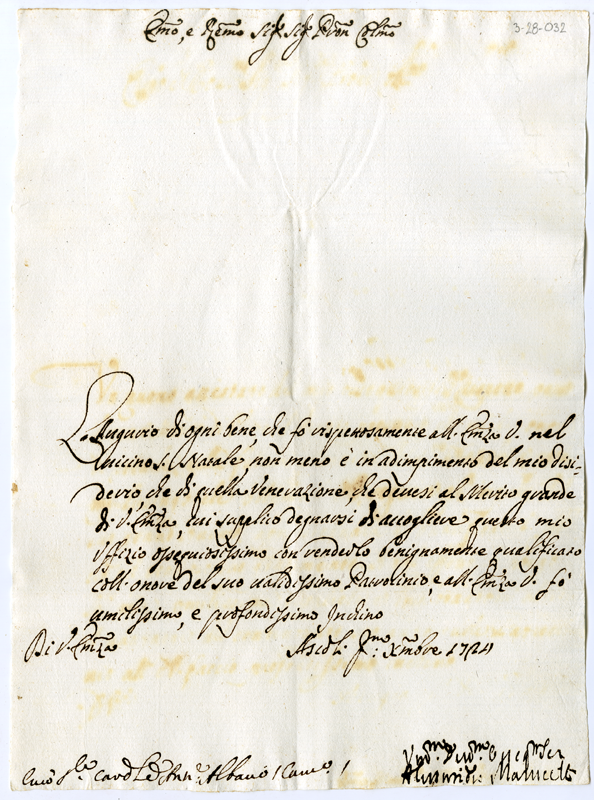 3-28-032
Emo, e Remo Sig.r Sig.r Pron Colmo
L'Augurio di ogni bene, che fò rispettosamente all'Emza V. nel
vicino S. Natale, non meno è in adimpimento del mio disi-
derio, che di quella Venerazione, che deuesi al Merito grande
di V. Emza, cui supplico degnarsi di accogliere questo mio
Vffizio ossequiosissimo con renderlo benignamente qualificato
coll'onore del suo ualidissimo Patrocinio, e all'Emza V. fò
umilissimo, e profondissimo Inchino
Di V. Emza Ascoli Pmo: Xmbre 1724
Card Albano